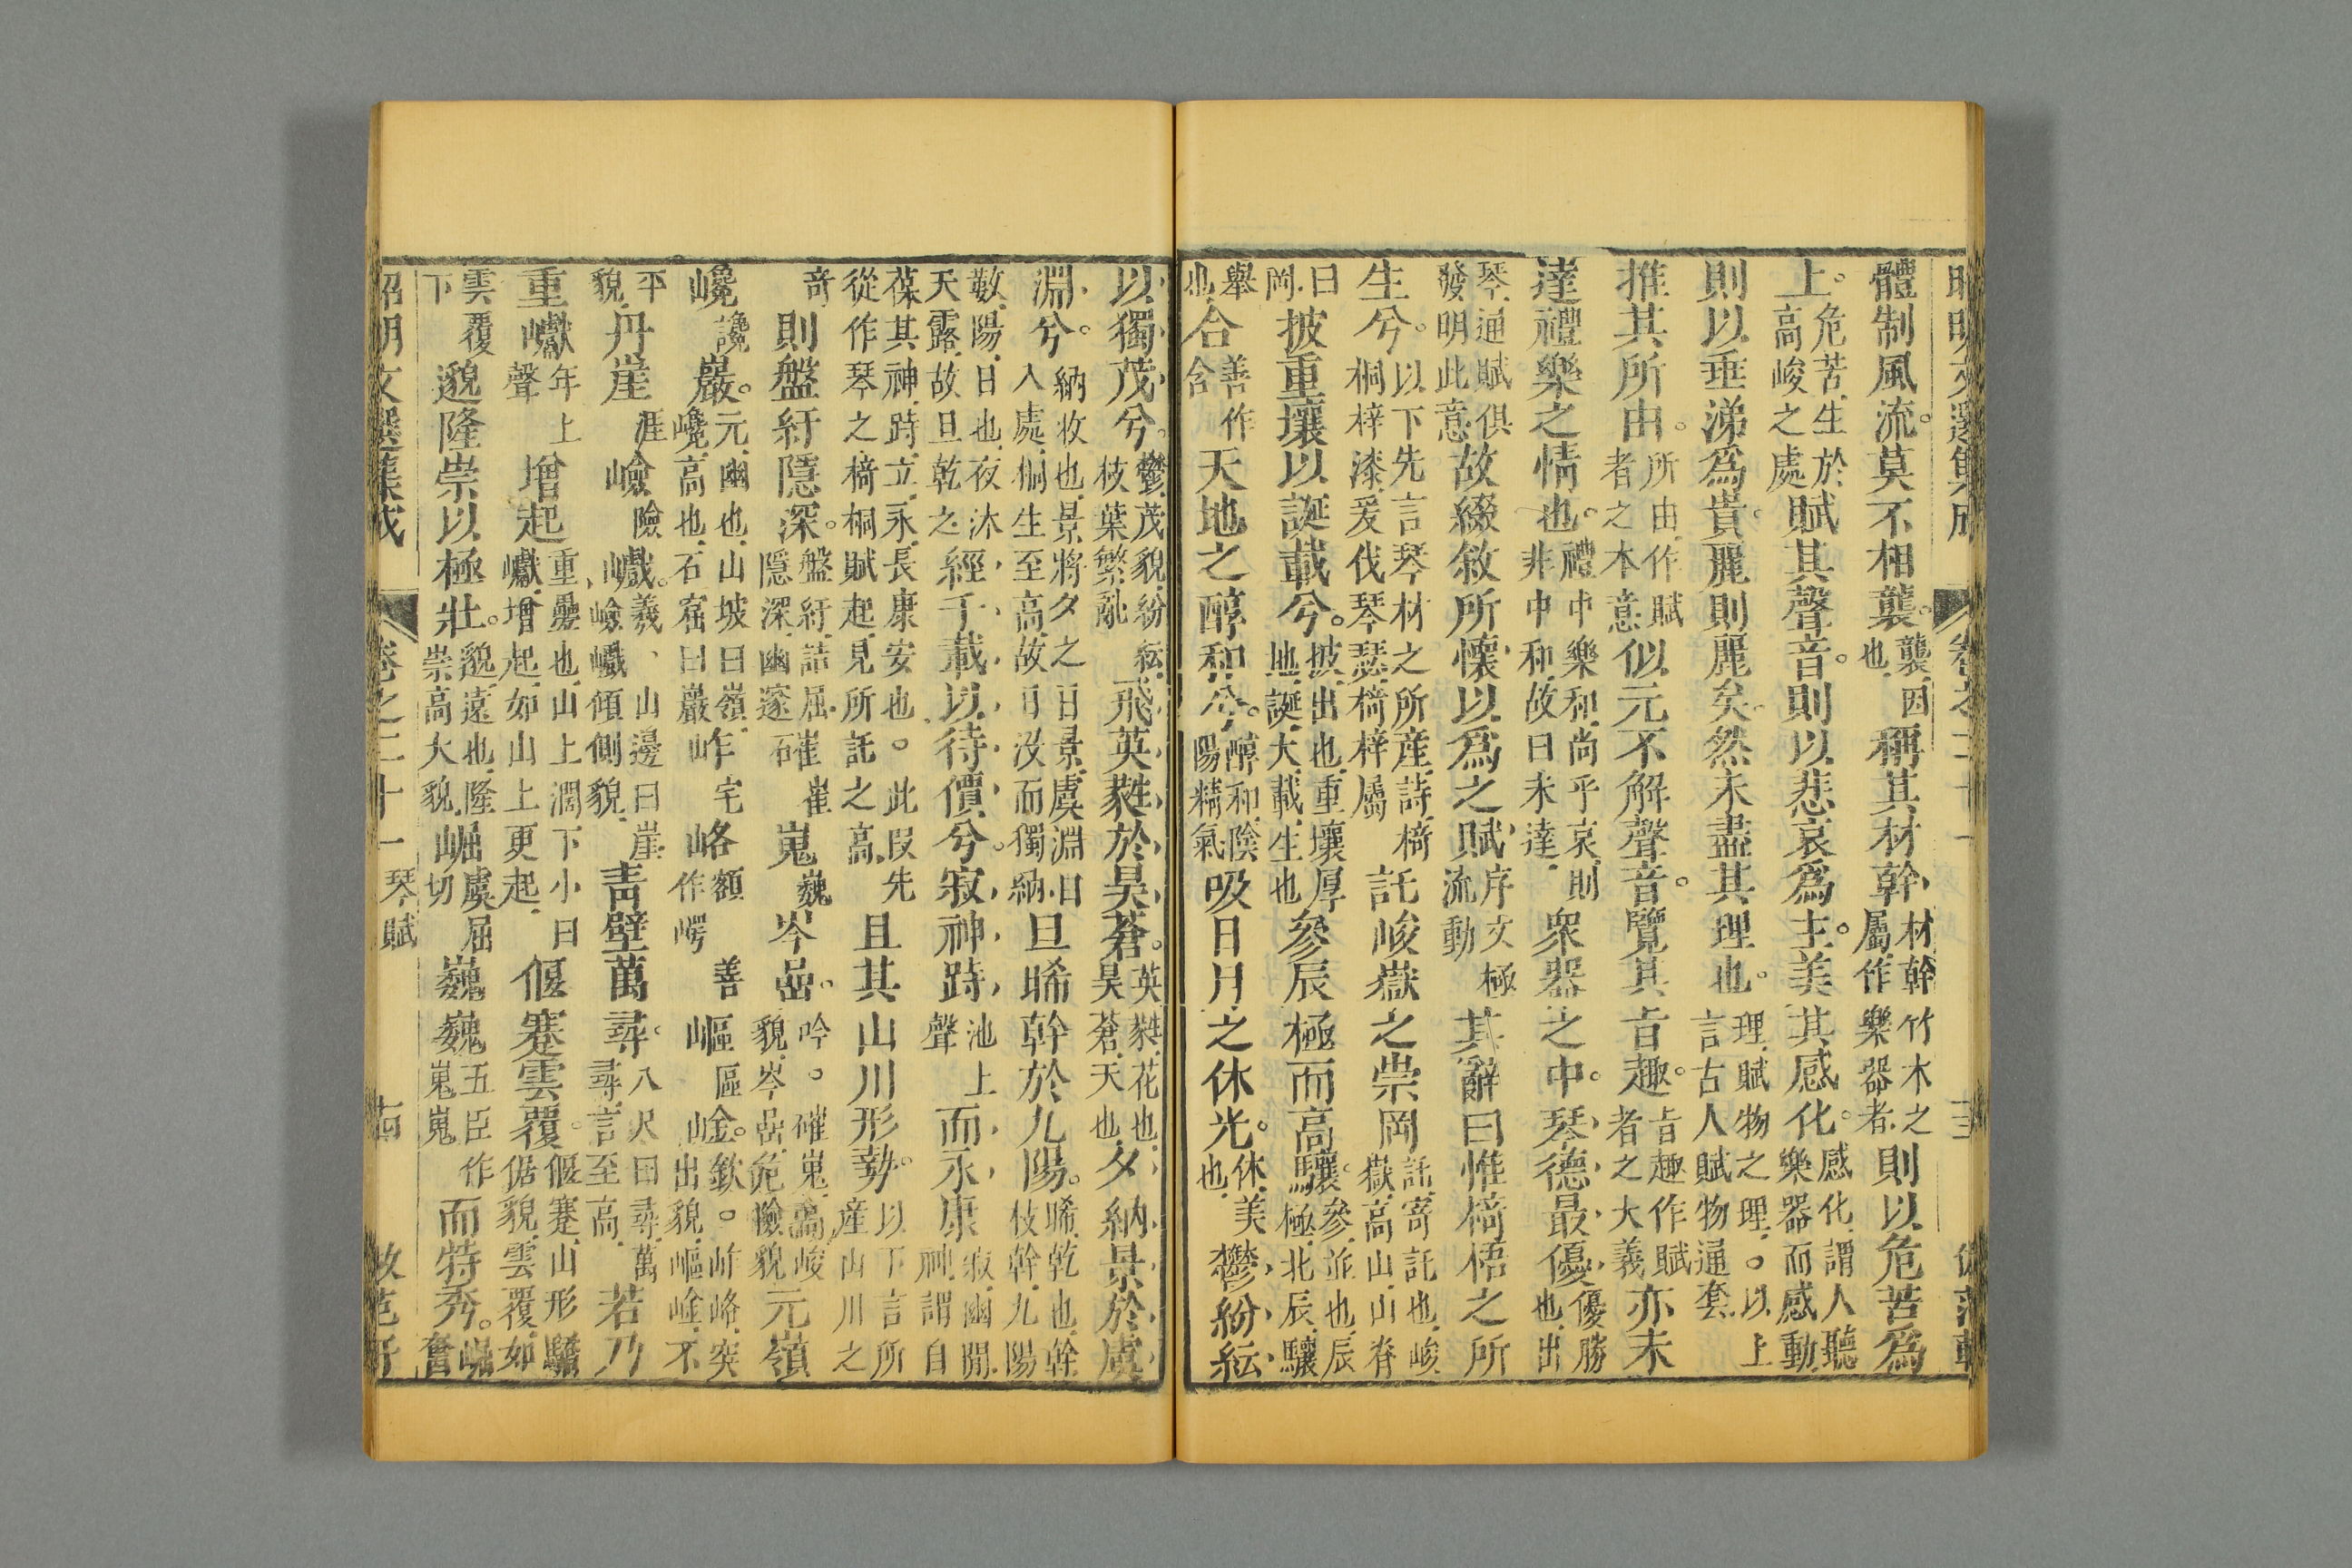 體制風流。莫不相襲。襲因也稱其材幹材幹竹木之屬作樂器者則以危苦爲
上。危苦生於高峻之處賦其聲音。則以悲哀爲主。美其感化。感化謂人聽樂器而感動
則以垂涕爲貴。麗則麗矣。然未盡其理也。理賦物之理。以上言古人賦物通套
推其所由。所由作賦者之本意似元不解聲音。覽其旨趣。旨趣作賦者之大義亦未
達禮樂之情也。禮中樂和尚乎哀則非中和故曰未達衆器之中。琴德最優優勝也出
琴通賦俱發明此意故綴敘所懷以爲之賦序文極流動其辭曰惟椅梧之所
生兮。以下先言琴材之所産詩椅桐梓漆爰伐琴瑟椅梓屬託峻嶽之崇岡託寄託也峻嶽高山山脊
曰岡披重壤以誕載兮。披出也重壤厚地誕大載生也參辰極而高驤。參並也辰極北辰驤
舉也含善作含天地之醇和兮。醇和陰陽精氣吸日月之休光。休美也鬱紛紜
以獨茂兮。鬱茂貌紛紜枝葉繁亂飛英蕤於昊蒼。英蕤花也昊蒼天也夕納景於虞
淵兮。納收也景將夕之日景虞淵日入處桐生至高故日沒而獨納旦晞幹於九陽。晞乾也幹枝幹九陽
數陽日也夜沐天露故旦乾之經千載以待價兮。寂神跱池上聲而永康寂幽閒神謂自
葆其神跱立永長康安也。此叚先從作琴之椅桐賦起見所託之高且其山川形勢。以下言所産山川之
奇則盤紆隱深。盤紆詰屈隱深幽邃確崔嵬巍岑嵒。吟。確嵬高峻貌岑嵒危險貌元嶺
巉讒巖。元幽也山坡曰嶺巉高也石窟曰巖岞宅㟯額作㟧善嶇區崟。欽。岞㟯突出貌嶇崟不
平貌丹崖涯嶮險巇。羲、山邊曰崖嶮巇傾側貌青壁萬尋。八尺曰尋萬尋言至高若乃
重巘年上聲增起重疊也山上澗下小曰巘增起如山上更起偃蹇雲覆。偃蹇山形驕倨貌雲覆如
雲覆下邈隆崇以極壯。邈遠也隆崇高大貌崛虞屈切巍巍五臣作嵬嵬而特秀。崛奮
昭明文選集成 卷之二十一 琴賦